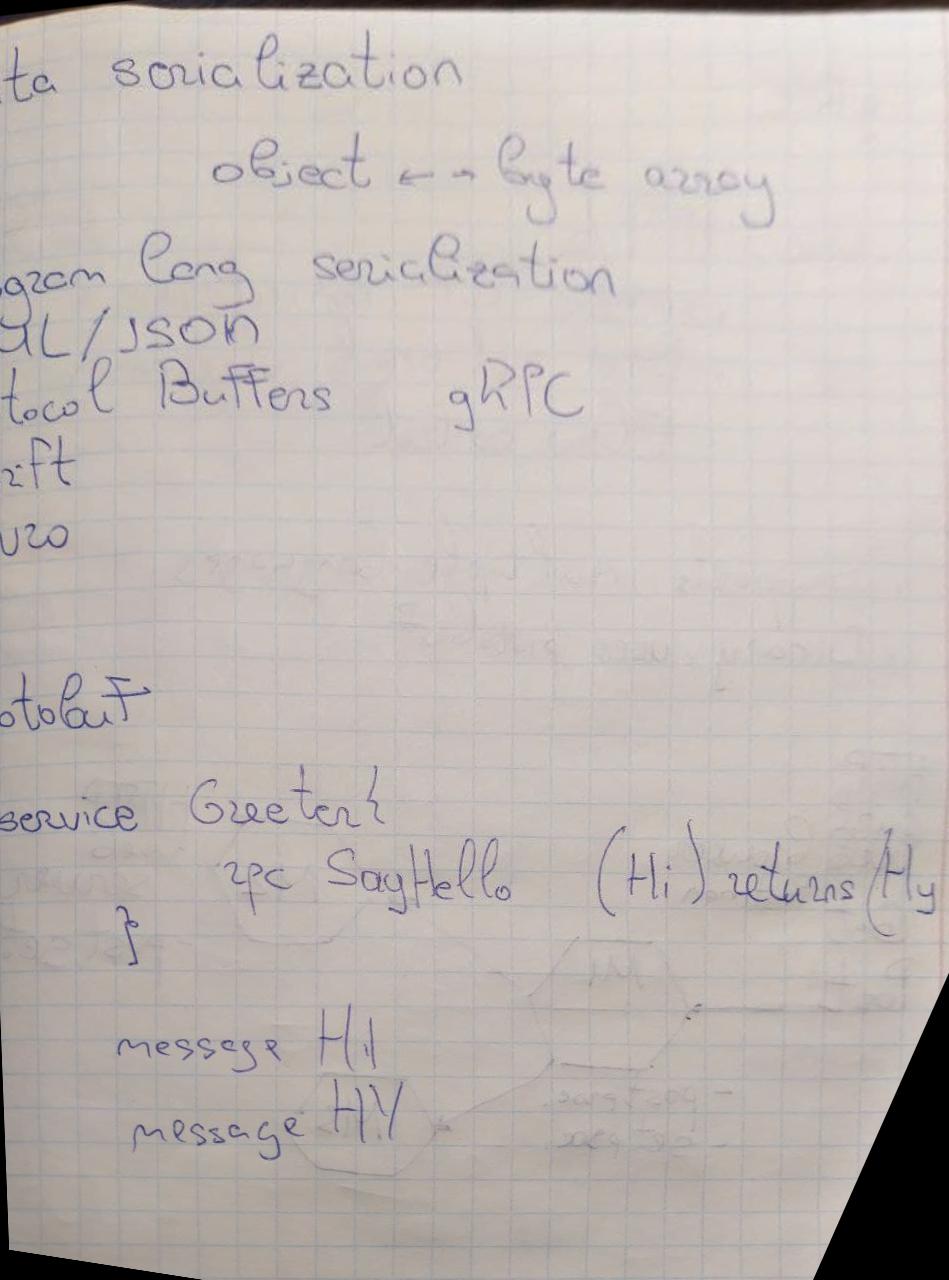 ta serialization
object ← → byte array
gram lang serialization
ML/JSON
tocol Buffers gRPC
rift
vro
otobuf
service Greeter {
rpc SayHello (Hi) returns (Hy
}
message Hi
message HY